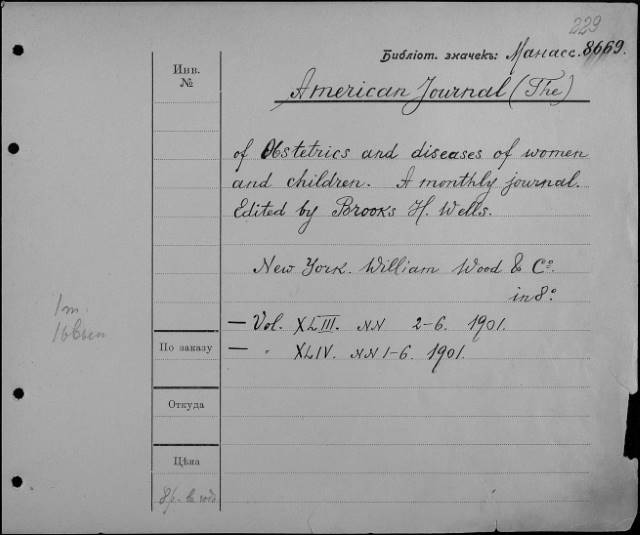 229
Библіот. значекъ: Манасс. 8669.
Инв.
№
American Journal (The)
of Obstetrics and diseases of women
and children. A monthly journal.
Edited by Brooks H. Wells.
New York. William Wood & Cº.
in 8º
1 т.
16 вып
— Vol. XLIII. NN 2-6. 1901.
По заказу
— " XLIV. NN 1-6. 1901.
Откуда
Цѣна
8 р. в годъ